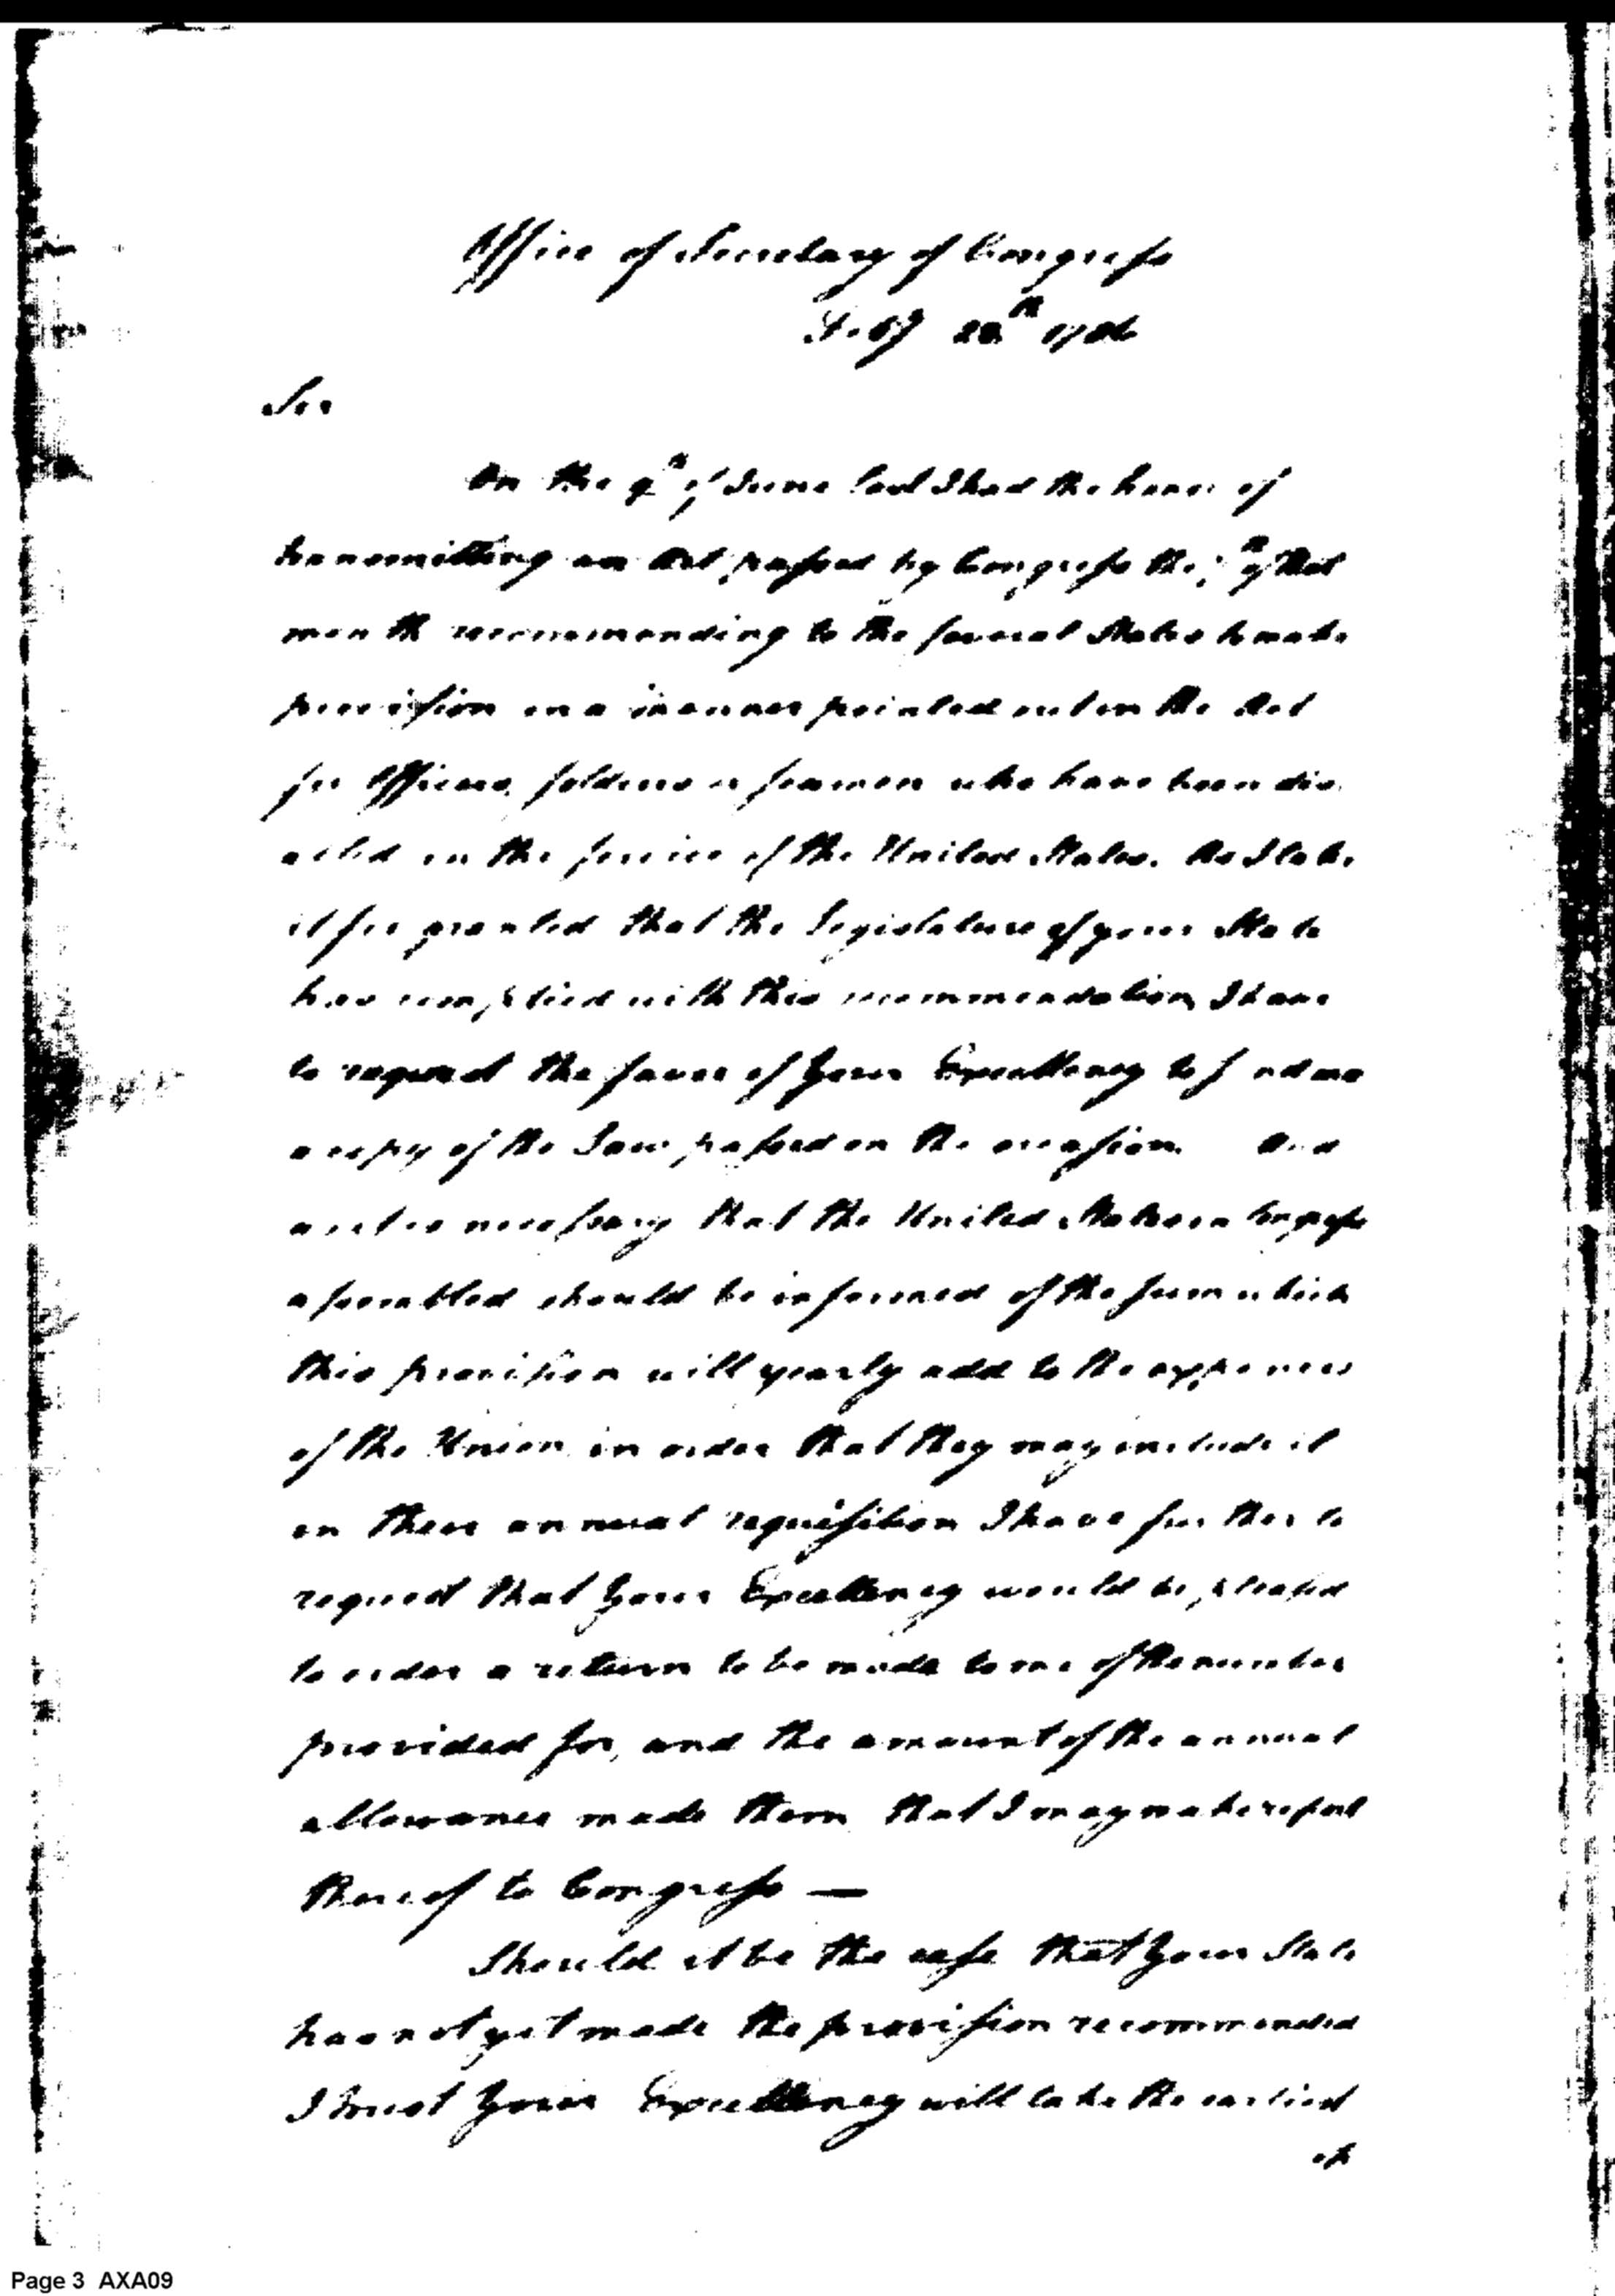 Office of Secretary of Congress
Feby 28th 1786
Sir
On the 9th of June last I had the honor of
transmitting an Act passed by Congress the 7th of that
month recommending to the several States to make
provision in a manner pointed out in the Act
for Officers, soldiers or seamen who have been dis
abled in the service of the United States. As I take
it for granted that the Legislature of your State
has complied with this recommendation, I have
to request the favor of Your Excellency to send me
a copy of the Law passed on the occasion. And
as it is necessary that the United States in Congress
assembled should be informed of the sum which
this provision will yearly add to the expences
of the Union in order that they may include it
in their annual requisition I have further to
request that Your Excellency would be pleased
to order a return to be made to me of the number
provided for, and the amount of the annual
allowance made them that I may make report
thereof to Congress —
Should it be the case that Your State
has not yet made the provision recommended
I trust Your Excellency will take the earliest
Page 3 AXA09